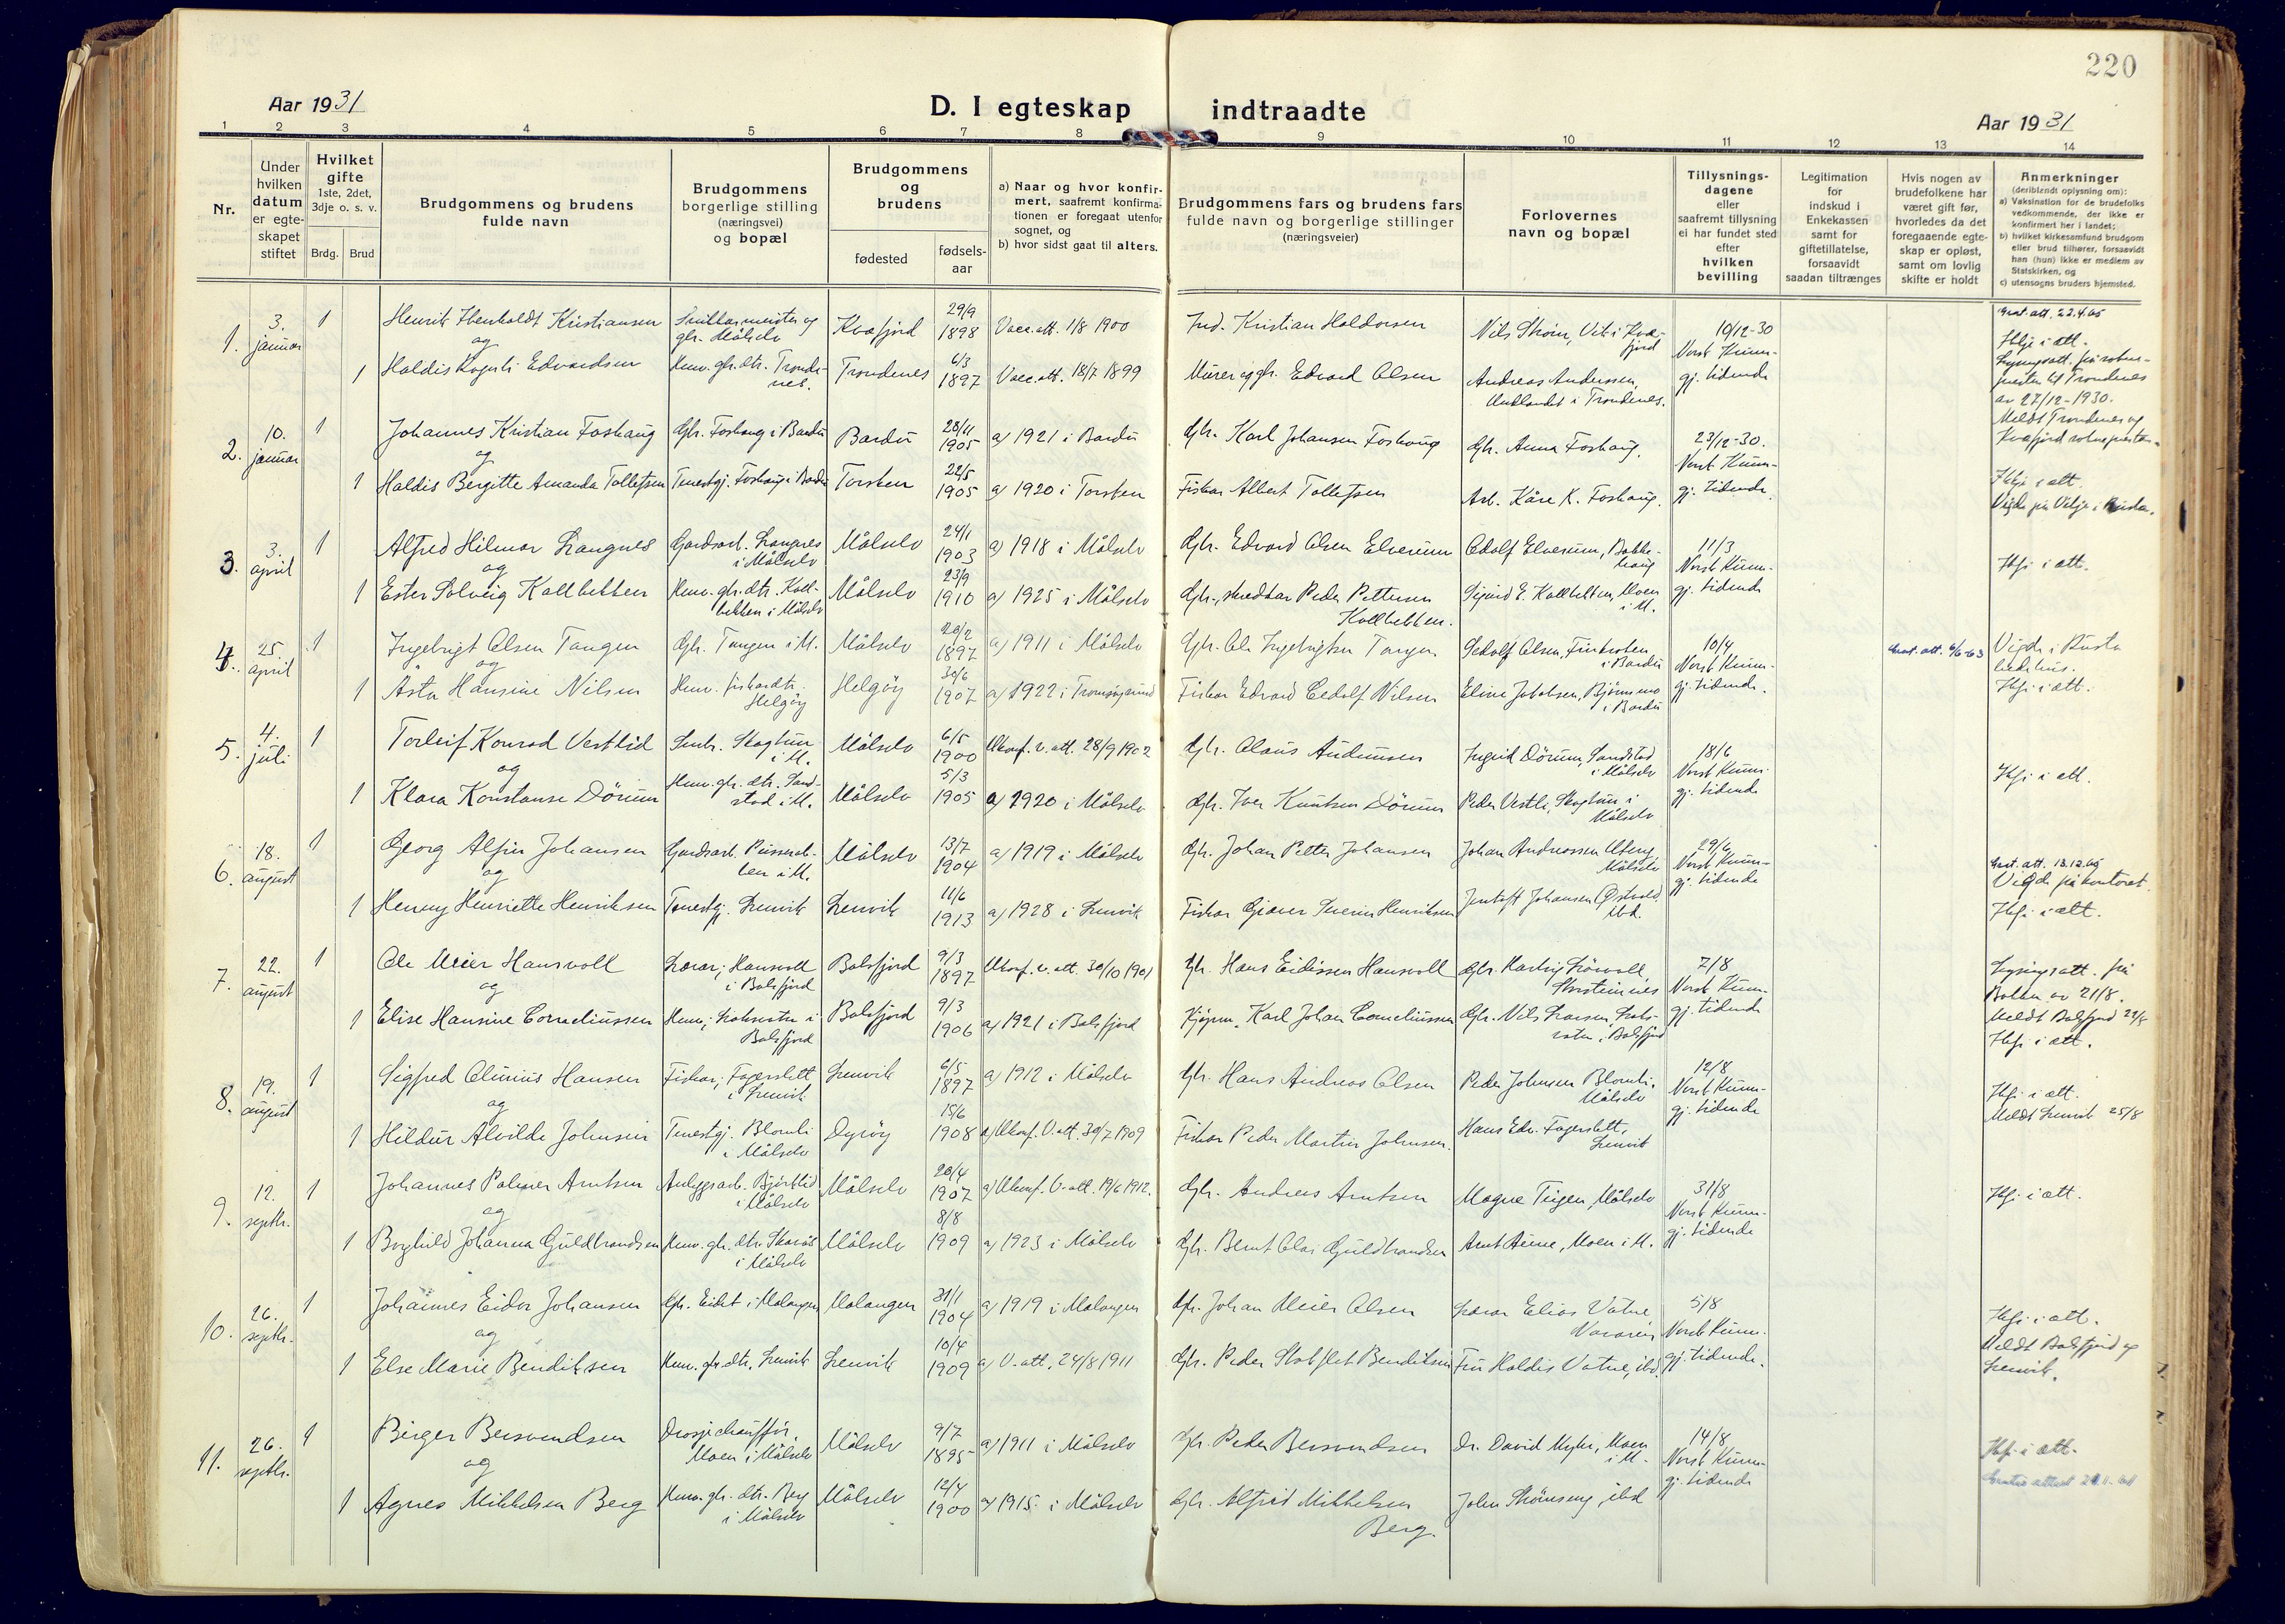 220
Aar 1931
D. I egteskap indtraadte
Aar 1931
1 2 3 4 5 6 7 8 9 10 11 12 13 14
Nr.
Under hvilken datum er egte-skapet stiftet
Hvilket gifte
1ste, 2det, 3dje o. s. v.
Brdg. Brud
Brudgommens og brudens fulde navn
Brudgommens borgerlige stilling (næringsvei) og bopæl
Brudgommens og brudens
fødested
fødsels-aar
a) Naar og hvor konfir-mert, saafremt konfirma-tionen er foregaat utenfor sognet, og
b) hvor sidst gaat til alters.
Brudgommens fars og brudens fars fulde navn og borgerlige stillinger (næringsveier)
Forlovernes navn og bopæl
Tillysnings-dagene eller saafremt tillysning ei har fundet sted efter hvilken bevilling
Legitimation for indskud i Enkekassen samt for giftetillatelse, forsaavidt saadan tiltrænges
Hvis nogen av brudefolkene har været gift før, hvorledes da det foregaaende egte-skap er opløst, samt om lovlig skifte er holdt
Anmerkninger
(deriblandt oplysning om):
a) Vaksination for de brudefolks vedkommende, der ikke er konfirmert her i landet;
b) hvilket kirkesamfund brudgom eller brud tilhører, forsaavidt han (hun) ikke er medlem av Statskirken, og
c) utensogns bruders hjemsted.
1. 3. januar 1 Henrik Kristiansen og
gbr. Målselv Kvæfjord 29/9 1898 Vacc. att. 1/8 1900
Kristian Haldorsen
10/12-30 Norsk Kunn-gj. tidende
1 Haldis Edvardsen
Hmv. gbr. dtr. Trondenes Trondenes 6/3 1897 Vacc. att. 18/7 1899
Murer og gbr. Edvard Olsen
Andreas Anderssen, i Trondenes.
Hbf. i att.
av 27/12-1930.
Meldt Trondenes og Kvæfjord
2. 10. januar 1 Johannes Kristian Foshaug og
Gbr. Foshaug i Bardu Bardu 28/11 1905 a) 1921 i Bardu
Gbr. Karl Johansen Foshaug
Gbr. Anna Foshaug.
23/12-30. Norsk Kunn-gj. tidende.
1 Haldis Bergitte Amanda Tollefsen
Tenestgj. Foshaug i Bardu Torsken 22/5 1905 a) 1920 i Torsken
Fiskar Albert Tollefsen
Arb. Kåre K. Foshaug.
Hbf. i att.
3. 3. april 1 Alfred Hilmar Langnes og
Gardsarb. Langnes i Målselv Målselv 24/1 1903 a) 1918 i Målselv
Gbr. Edvard Olsen Elverum
Adolf Elverum, Bakkehaug
11/3 Norsk Kunn-gj. tidende
1 Ester Solveig Kollbekken
Hmv. gbr. dtr. Kollbekken i Målselv Målselv 23/9 1910 a) 1925 i Målselv
Gbr., skreddar Peder Pettersen Kollbekken.
Sigurd E. Kollbekken, Moen i M.
Hbf. i att.
4. 25. april 1 Ingebrigt Olsen Tangen og
Gbr. Tangen i M. Målselv 20/2 1897 a) 1911 i Målselv
Gbr. Ole Ingebrigtsen Tangen
Sedolf Olsen, Finkroken i Bardu
10/4 Norsk Kunn-gj. tidende.
Vigde i Rusta bedehus.
1 Åsta Hansine Nilsen
Hmv. fiskardtr. Helgøy Helgøy 30/6 1907 a) 1922 i Tromsøysund
Fiskar Edvard Cedolf Nilsen
Eline Jakobsen, Bjørnsmo i Bardu
Hbf. i att.
5. 4. juli 1 Torleif Konrad Vestlid og
Snek. Skogtun i M. Målselv 6/5 1900 Ukonf. v. att. 28/9 1902
Gbr. Olaus Andersen
Ingrid Dørum, Sandstad i Målselv
18/6 Norsk Kunn-gj. tidende
1 Klara Konstanse Dørum
Hmv. gbr. dtr. Sandstad i M. Målselv 5/3 1905 a) 1920 i Målselv
Gbr. Iver Knutsen Dørum
Peder Vestli, Skogtun i Målselv
Hbf. i att.
6. 18. august 1 Georg Alfin Johansen og
Målselv 13/7 1904 a) 1919 i Målselv
Gbr. Johan Petter Johansen
Johan Andreassen Målselv
29/6 Norsk Kunn-gj. tidende
1 Henny Henriette Henriksen
Tenestgj. Lenvik Lenvik 11/6 1913 a) 1928 i Lenvik
Fiskar Gjæver Severin Henriksen
Jentoft Johansen Østvold, ibd.
Vigde på kontoret.
Hbf. i att.
7. 22. august 1 Ole Meier Hansvoll og
Lærar; Hansvoll i Balsfjord Balsfjord 9/3 1897 Ukonf. v. att. 30/10 1901
Gbr. Hans Eilissen Hansvoll
7/8 Norsk Kunn-gj. tidende
1 Elise Hansine Corneliussen
Balsfjord 9/3 1906 a) 1921 i Balsfjord
Kjøpm. Karl Johan Corneliussen
Gbr. Nils Larsen, Balsfjord
Meldt Balsfjord 22/8
Hbf. i att.
8. 19. august 1 Sigfred Olunius Hansen og
Fiskar; Fagerslett, i Lenvik Lenvik 6/5 1897 a) 1912 i Målselv
Gbr. Hans Andreas Olsen
Peder Johnsen Blomli, Målselv
12/8 Norsk Kunn-gj. tidende
1 Hildur Alvilde Johnsen
Tenestgj. Blomli i Målselv Dyrøy 15/6 1908 a) Ukonf. V. att. 30/7 1909
Fiskar Peder Martin Johnsen.
Hans Edv. Fagerslett, Lenvik
Hbf. i att.
Meldt Lenvik 25/8
9. 12. septbr. 1 Johannes Palmer Arntsen og
Anleggsarb. Bjørklid i Målselv Målselv 20/4 1907 a) Ukonf. V. att. 19/6 1912.
Gbr. Andreas Arntsen
Magne Tiegen, Målselv
31/8 Norsk Kunn-gj. tidende
1 Borghild Johanna Guldbrandsen
Hmv. gbr. dtr. i Målselv Målselv 8/8 1909 a) 1923 i Målselv
Gbr. Bernt Olai Guldbrandsen
Arnt Aune, Moen i M.
Hbf. i att.
10. 26. septbr. 1 Johannes Eidor Johansen og
Gbr. Eidet i Malangen Malangen 31/1 1904 a) 1919 i Malangen
Gbr. Johan Meier Olsen
Lærar Elias Vatne
5/8 Norsk Kunn-gj. tidende.
1 Else Marie Bendiksen
Hmv. gbr. dtr. Lenvik Lenvik 10/4 1909 a) V. att. 24/8 1911
Gbr. Peder Bendiksen
Fru Haldis Vatne, ibd.
Hbf. i att.
Meldt Balsfjord og Lenvik.
11. 26. septbr. 1 Birger Bersvendsen og
Drosjechauffør, Moen i Målselv Målselv 9/7 1895 a) 1911 i Målselv
Gbr. Peder Bersvendsen
Dr. David Myhr, Moen i M.
14/8 Norsk Kunn-gj. tidende
1 Agnes Mikkelsen Berg
Hmv. gbr. dtr. Berg i Målselv Målselv 12/4 1900 a) 1915 i Målselv
Gbr. Alfred Mikkelsen Berg.
John Strømseng, ibd
Hbf. i att.